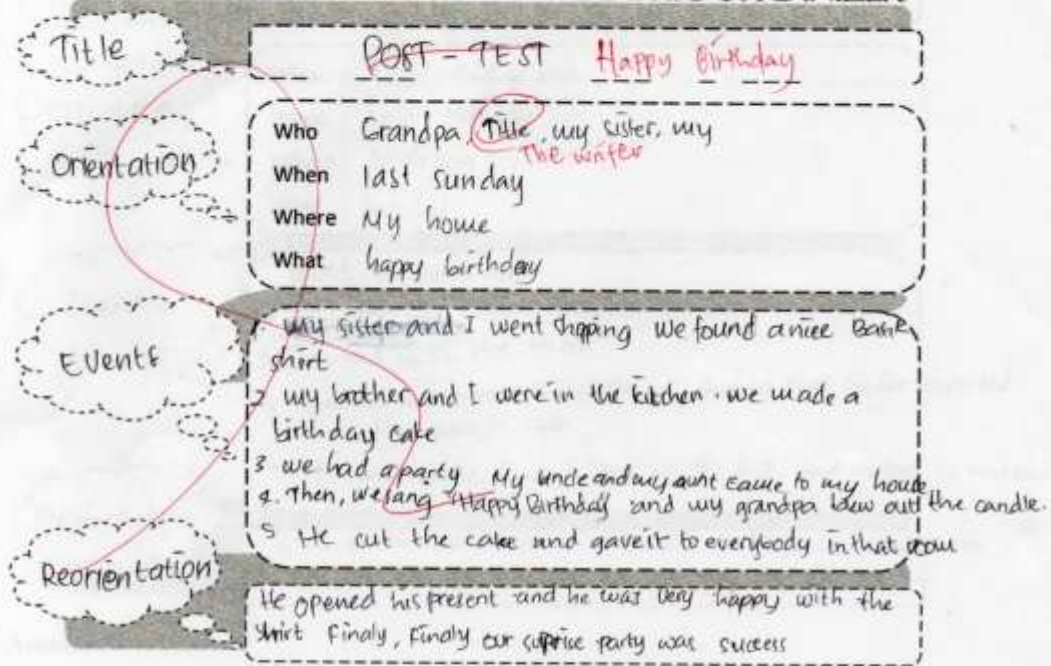 Title
POST - TEST Happy Birthday
Orientation
Who Grandpa, Title, my sister, my
The writer
When last sunday
Where My home
What happy birthday
Events
1 my sister and I went shoping we found a nice Batik
shirt
2 my brother and I were in the kitchen. we made a
birthday cake
3 we had a party My uncle and my aunt came to my house
4. Then, we sang "Happy Birthday" and my grandpa blew out the candle.
5 He cut the cake and gave it to everybody in that room
Reorientation
He opened his present and he was very happy with the
shirt Finaly, Finaly our suprise party was success